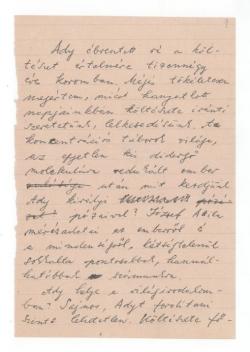 Ady ébresztett rá a köl-
tészet értelmére tizennégy
éves koromban. Mégis tökéletesen
megértem, miért hangzatlan
napjainkban költészete iránti
szeretetünk, lelkesedésünk. A
koncentrációs táborok világa,
az egyetlen kis dobogó
molekulává redukált ember
után mit kezdjünk
Ady királyi
pózaival? József Attila
mérőszalagai az emberről és
a mindenségről, kétségtelenül
sokkalta pontosabbak, használ-
hatóbbak számunkra.
Ady helye a világirodalom-
ban? Sajnos, Adyt fordítani
szinte lehetetlen. Költészete fő-